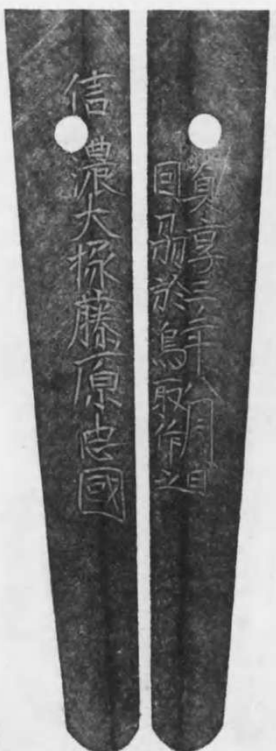 信濃大掾藤原忠國
貞享三年八月日
因刕於鳥取作之